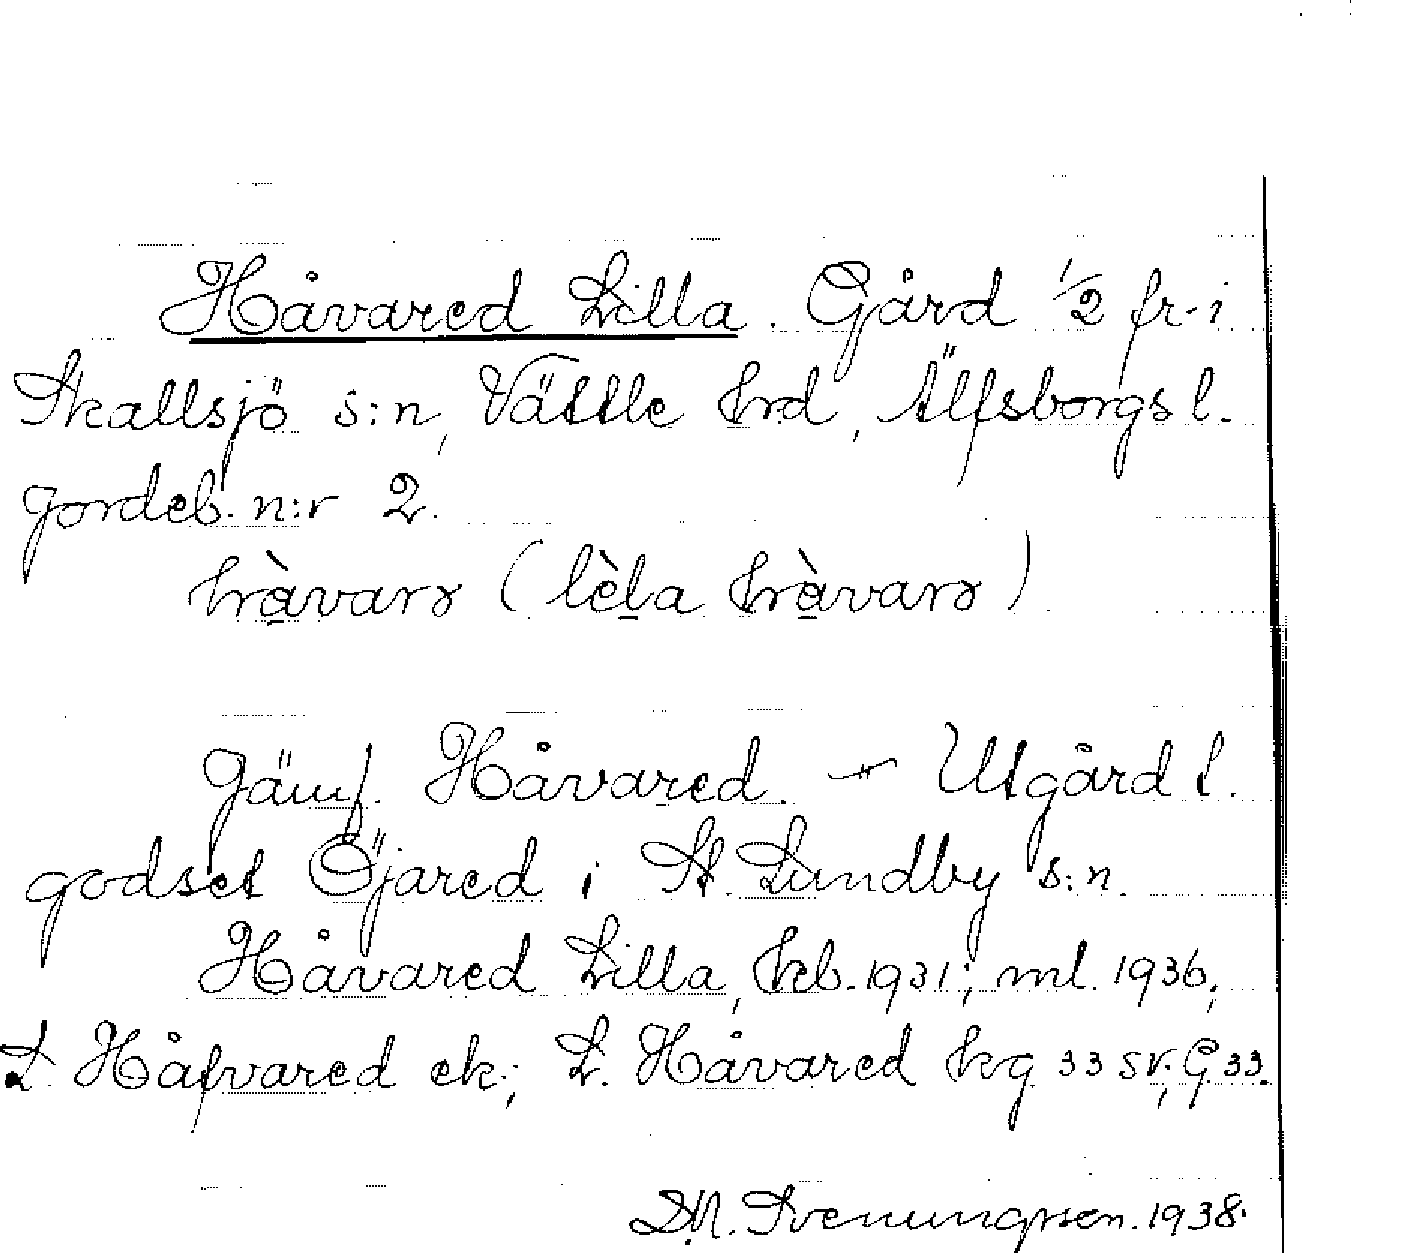 Håvared Lilla. Gård 1/2 fr. i
Skallsjö s:n, Vättle hrd, Älfsborgs l.
Jordeb. n:r 2.
hàvarə (lèla hàvarə)
Jämf. Håvared. — Utgård t.
godset Öjared i St. Lundby s:n.
Håvared Lilla, kb. 1931; ml. 1936;
L. Håfvared ek.; L. Håvared hkg 33 SV; G 33.
D.N. Svenungsson. 1938.